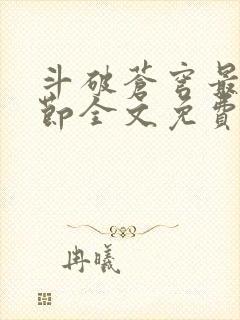 斗破苍穹最
节全文免费
冉曦